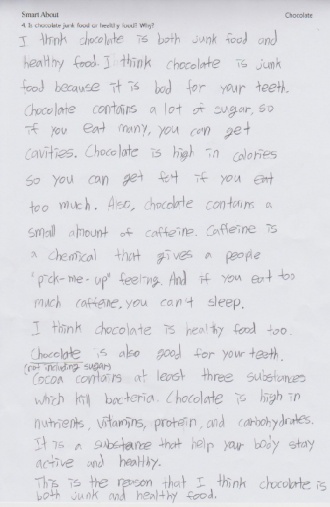 Smart About
Chocolate
4. Is chocolate junk food or healthy food? Why?
I think chocolate is both junk food and
healthy food. I think chocolate is junk
food because it is bad for your teeth.
Chocolate contains a lot of sugar, so
if you eat many, you can get
cavities. Chocolate is high in calories
so you can get fat if you eat
too much. Also, chocolate contains a
small amount of caffeine. Caffeine is
a chemical that gives a people
"pick-me-up" feeling. And if you eat too
much caffeine, you can't sleep.
I think chocolate is healthy food too.
Chocolate is also good for your teeth.
(not including sugar)
Cocoa contains at least three substances
which kill bacteria. Chocolate is high in
nutrients, vitamins, protein, and carbohydrates.
It is a substance that help your body stay
active and healthy.
This is the reason that I think chocolate is
both junk and healthy food.